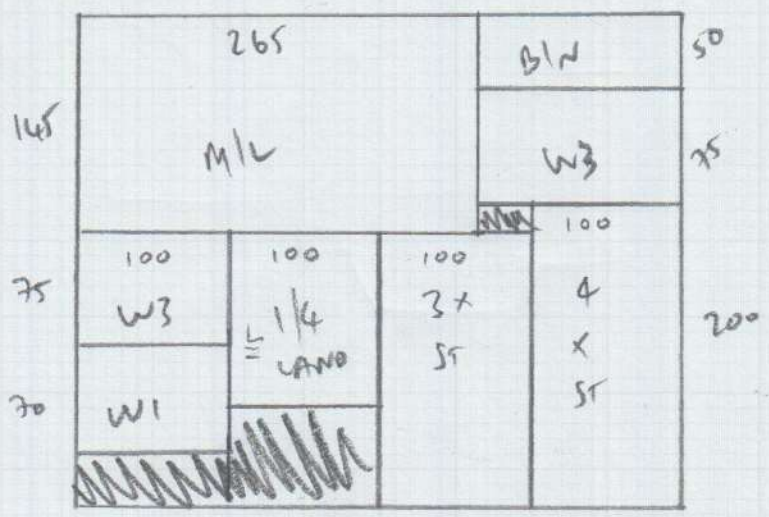 265
BIN
50
145
M/L
W3
75
100
100
100
100
75
W3
1/4
LAND
3 x
ST
4
x
ST
200
70
W1